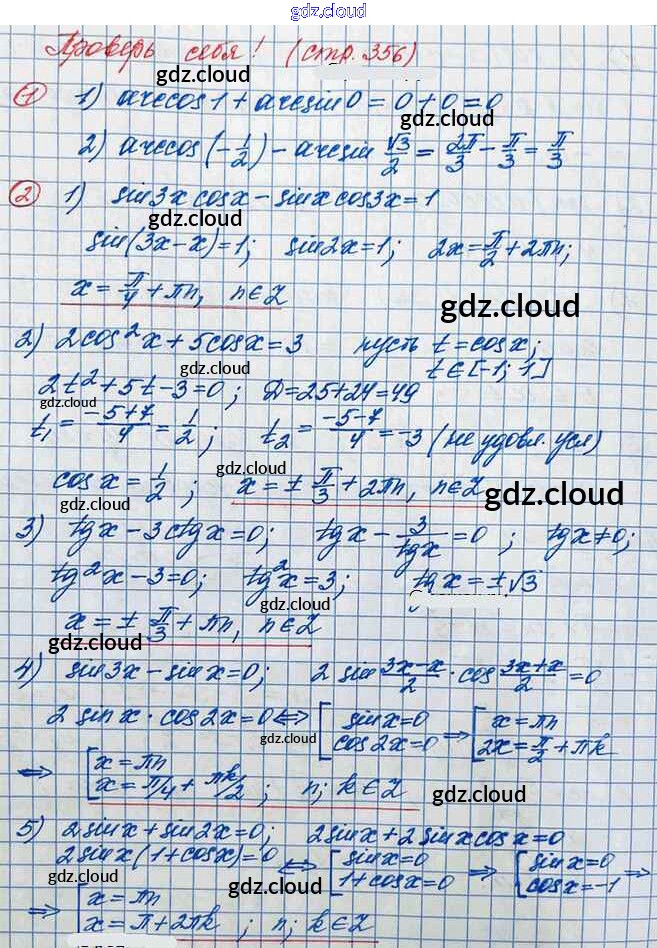 gdz.cloud
Проверь себя! (стр. 356)
gdz.cloud
① 1) arccos1 + arcsin0 = 0 + 0 = 0
gdz.cloud
2) arccos(-1/2) - arcsin √3/2 = 2π/3 - π/3 = π/3
gdz.cloud
② 1) sin3x cosx - sinx cos3x = 1
gdz.cloud
sin(3x-x)=1; sin2x=1; 2x=π/2+2πn;
x = π/4 + πn, n∈Z
gdz.cloud
2) 2cos²x + 5cosx = 3 пусть t = cosx;
t∈[-1; 1]
gdz.cloud
2t²+5t-3=0; D=25+24=49
gdz.cloud
t₁ = (-5+7)/4 = 1/2; t₂ = (-5-7)/4 = -3 (не удовл. усл)
gdz.cloud
cosx = 1/2; x = ± π/3 + 2πn, n∈Z
gdz.cloud
gdz.cloud
3) tgx - 3ctgx = 0; tgx - 3/tgx = 0; tgx≠0;
tg²x - 3 = 0; tg²x = 3; tgx = ±√3
gdz.cloud
x = ± π/3 + πn, n∈Z
gdz.cloud
4) sin3x - sinx = 0; 2 sin (3x-x)/2 · cos (3x+x)/2 = 0
gdz.cloud
2 sinx · cos2x = 0 ⇔ [ sinx=0 ⇒ [ x = πn
cos2x=0 2x = π/2 + πk
gdz.cloud
⇒ [ x = πn
x = π/4 + πk/2; n; k∈Z
gdz.cloud
5) 2sinx + sin2x = 0; 2sinx + 2sinx cosx = 0
2sinx(1+cosx)=0 ⇔ [ sinx=0 ⇒ [ sinx=0
1+cosx=0 cosx=-1 ⇒
gdz.cloud
gdz.cloud
gdz.cloud
⇒ [ x = πn
x = π + 2πk; n; k∈Z
gdz.cloud